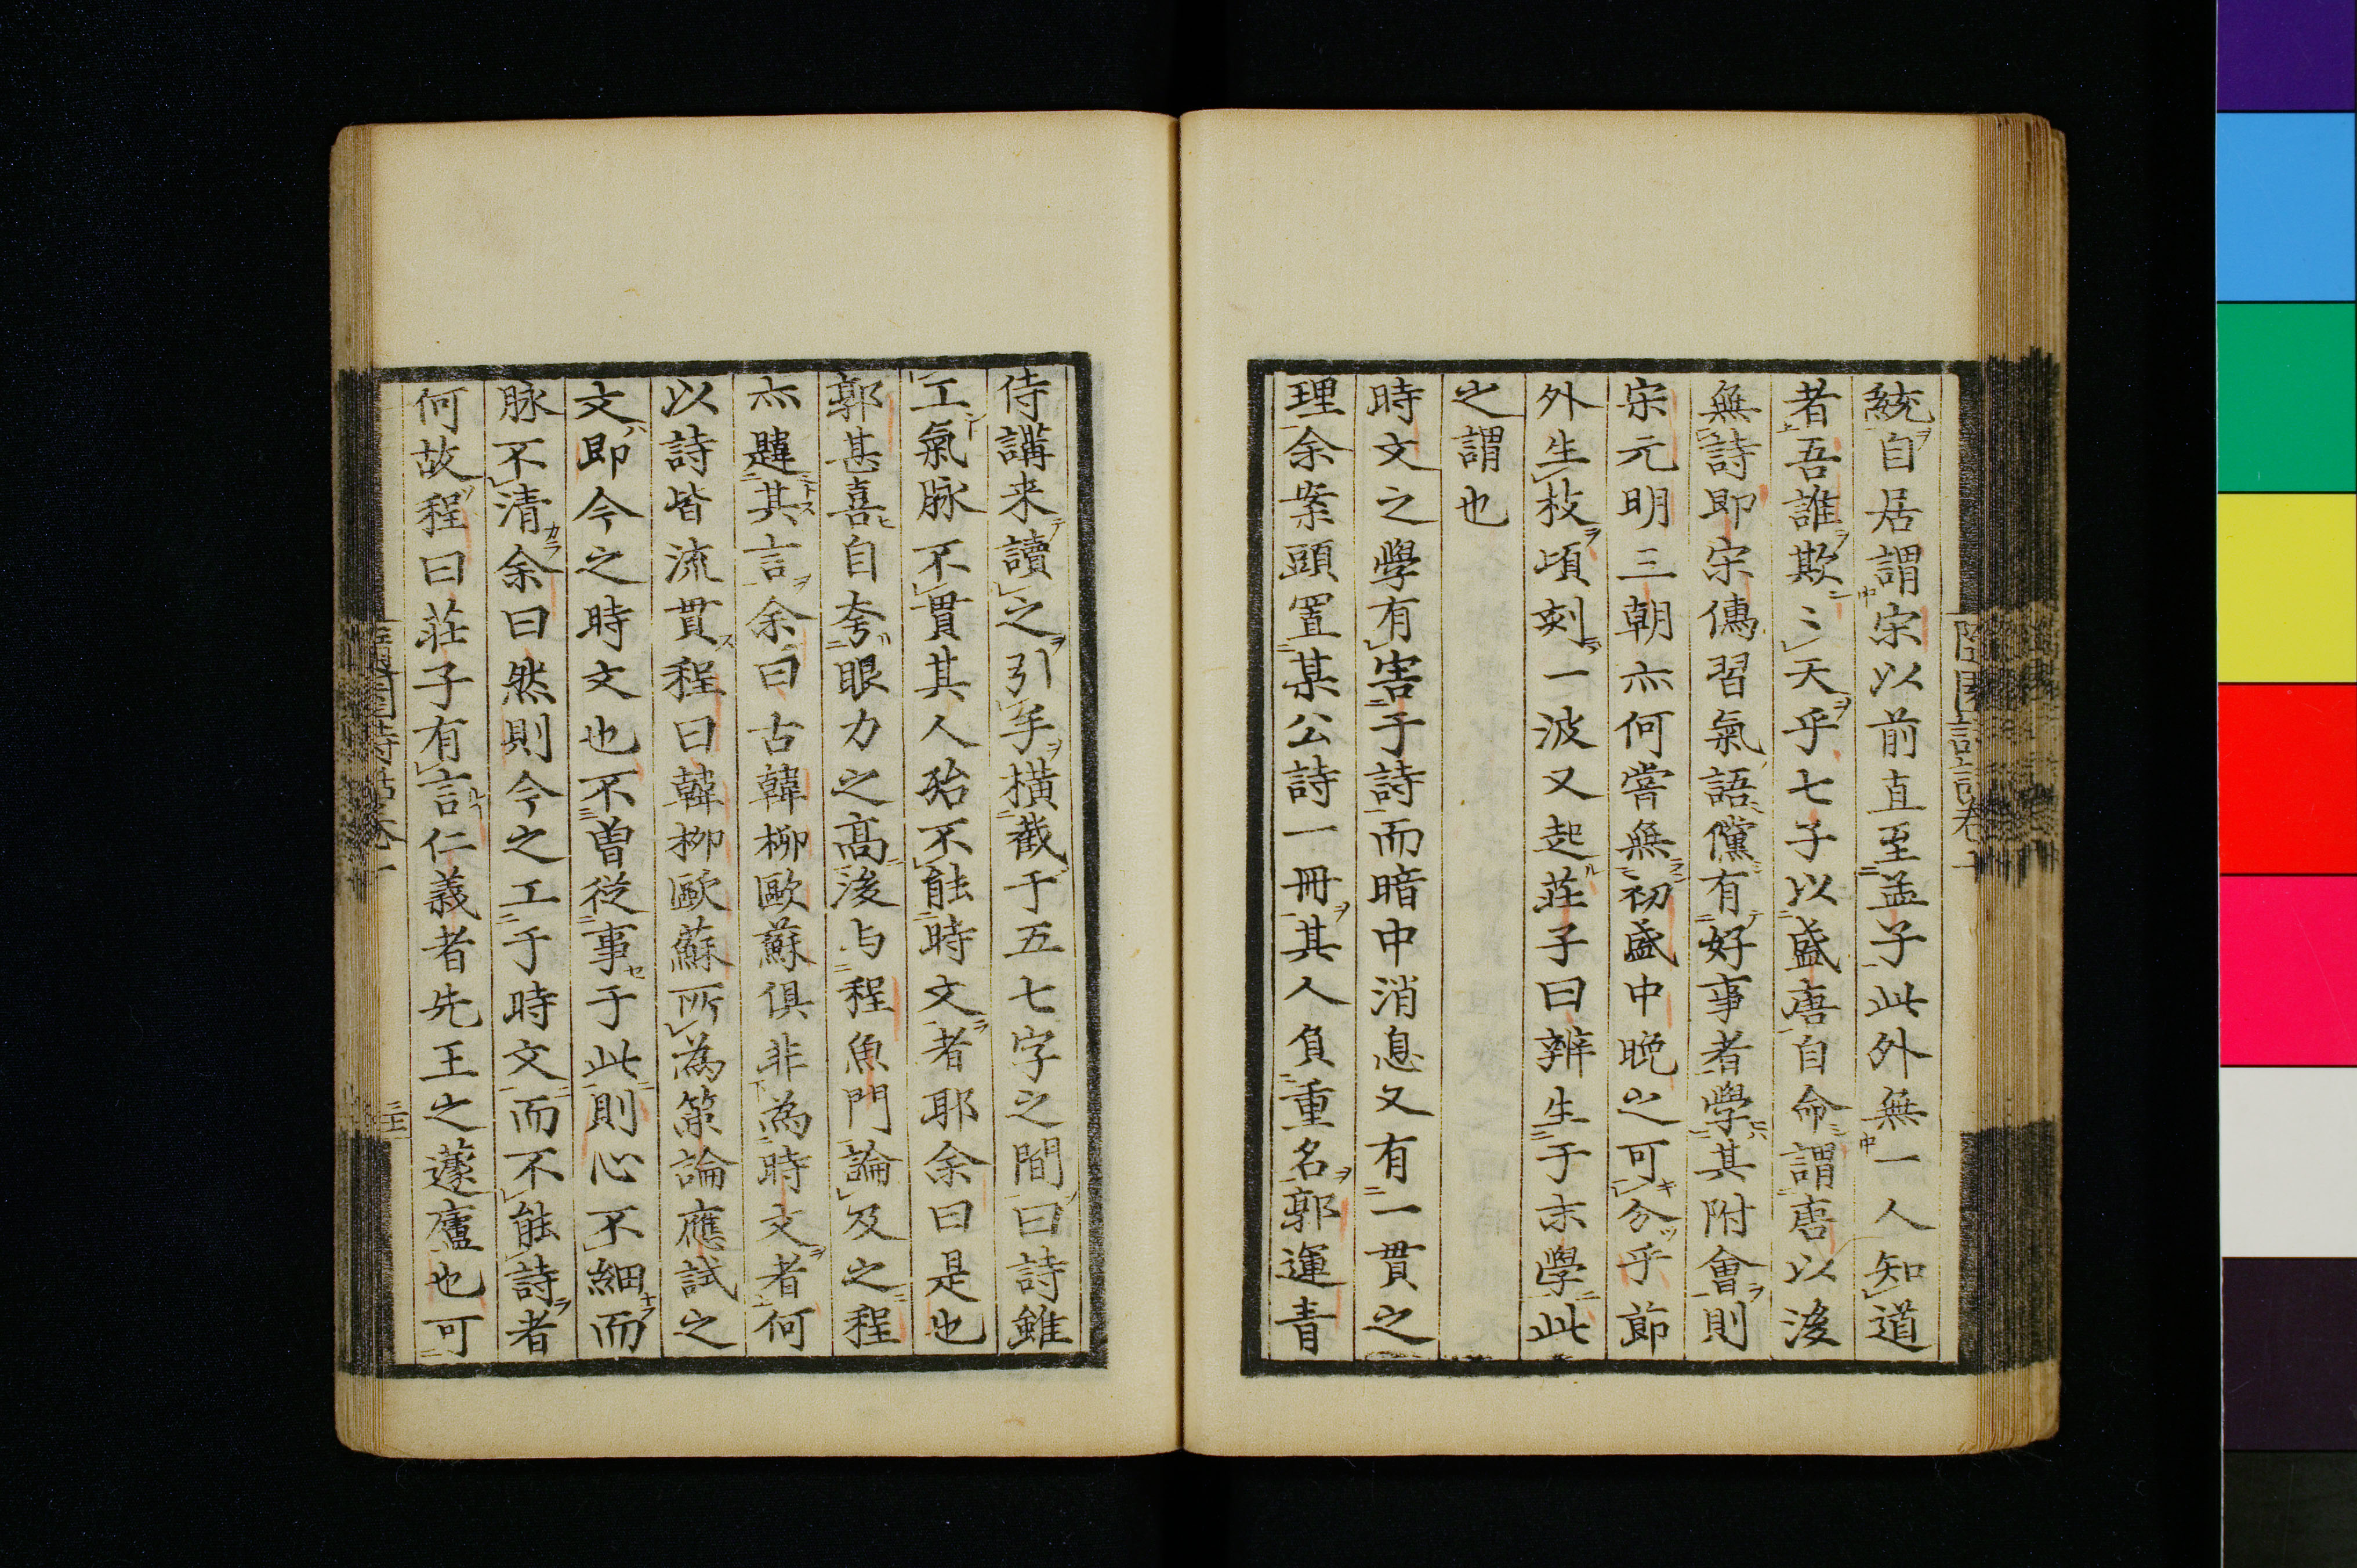 統自居謂宋以前直至孟子此外無一人知道
者吾誰欺〻天乎七子以盛唐自命謂唐以後
無詩即宋儒習氣語儻有好事者學其附會則
宋元明三朝亦何嘗無初盛中晩之可分乎節
外生枝頃刻一波又起莊子曰辨生于末學此
之謂也
時文之學有害于詩而暗中消息又有一貫之
理余案頭置某公詩一冊其人負重名郭運青
侍講来讀之引手横截于五七字之間曰詩雖
工氣脉不貫其人殆不能時文者耶余曰是也
郭甚喜自夸眼力之高後与程魚門論及之程
亦韙其言余曰古韓柳歐蘇俱非為時文者何
以詩皆流貫程曰韓柳歐蘇所為策論應試之
文即今之時文也不曽從事于此則心不細而
脉不清余曰然則今之工于時文而不能詩者
何故程曰莊子有言仁義者先王之蘧廬也可